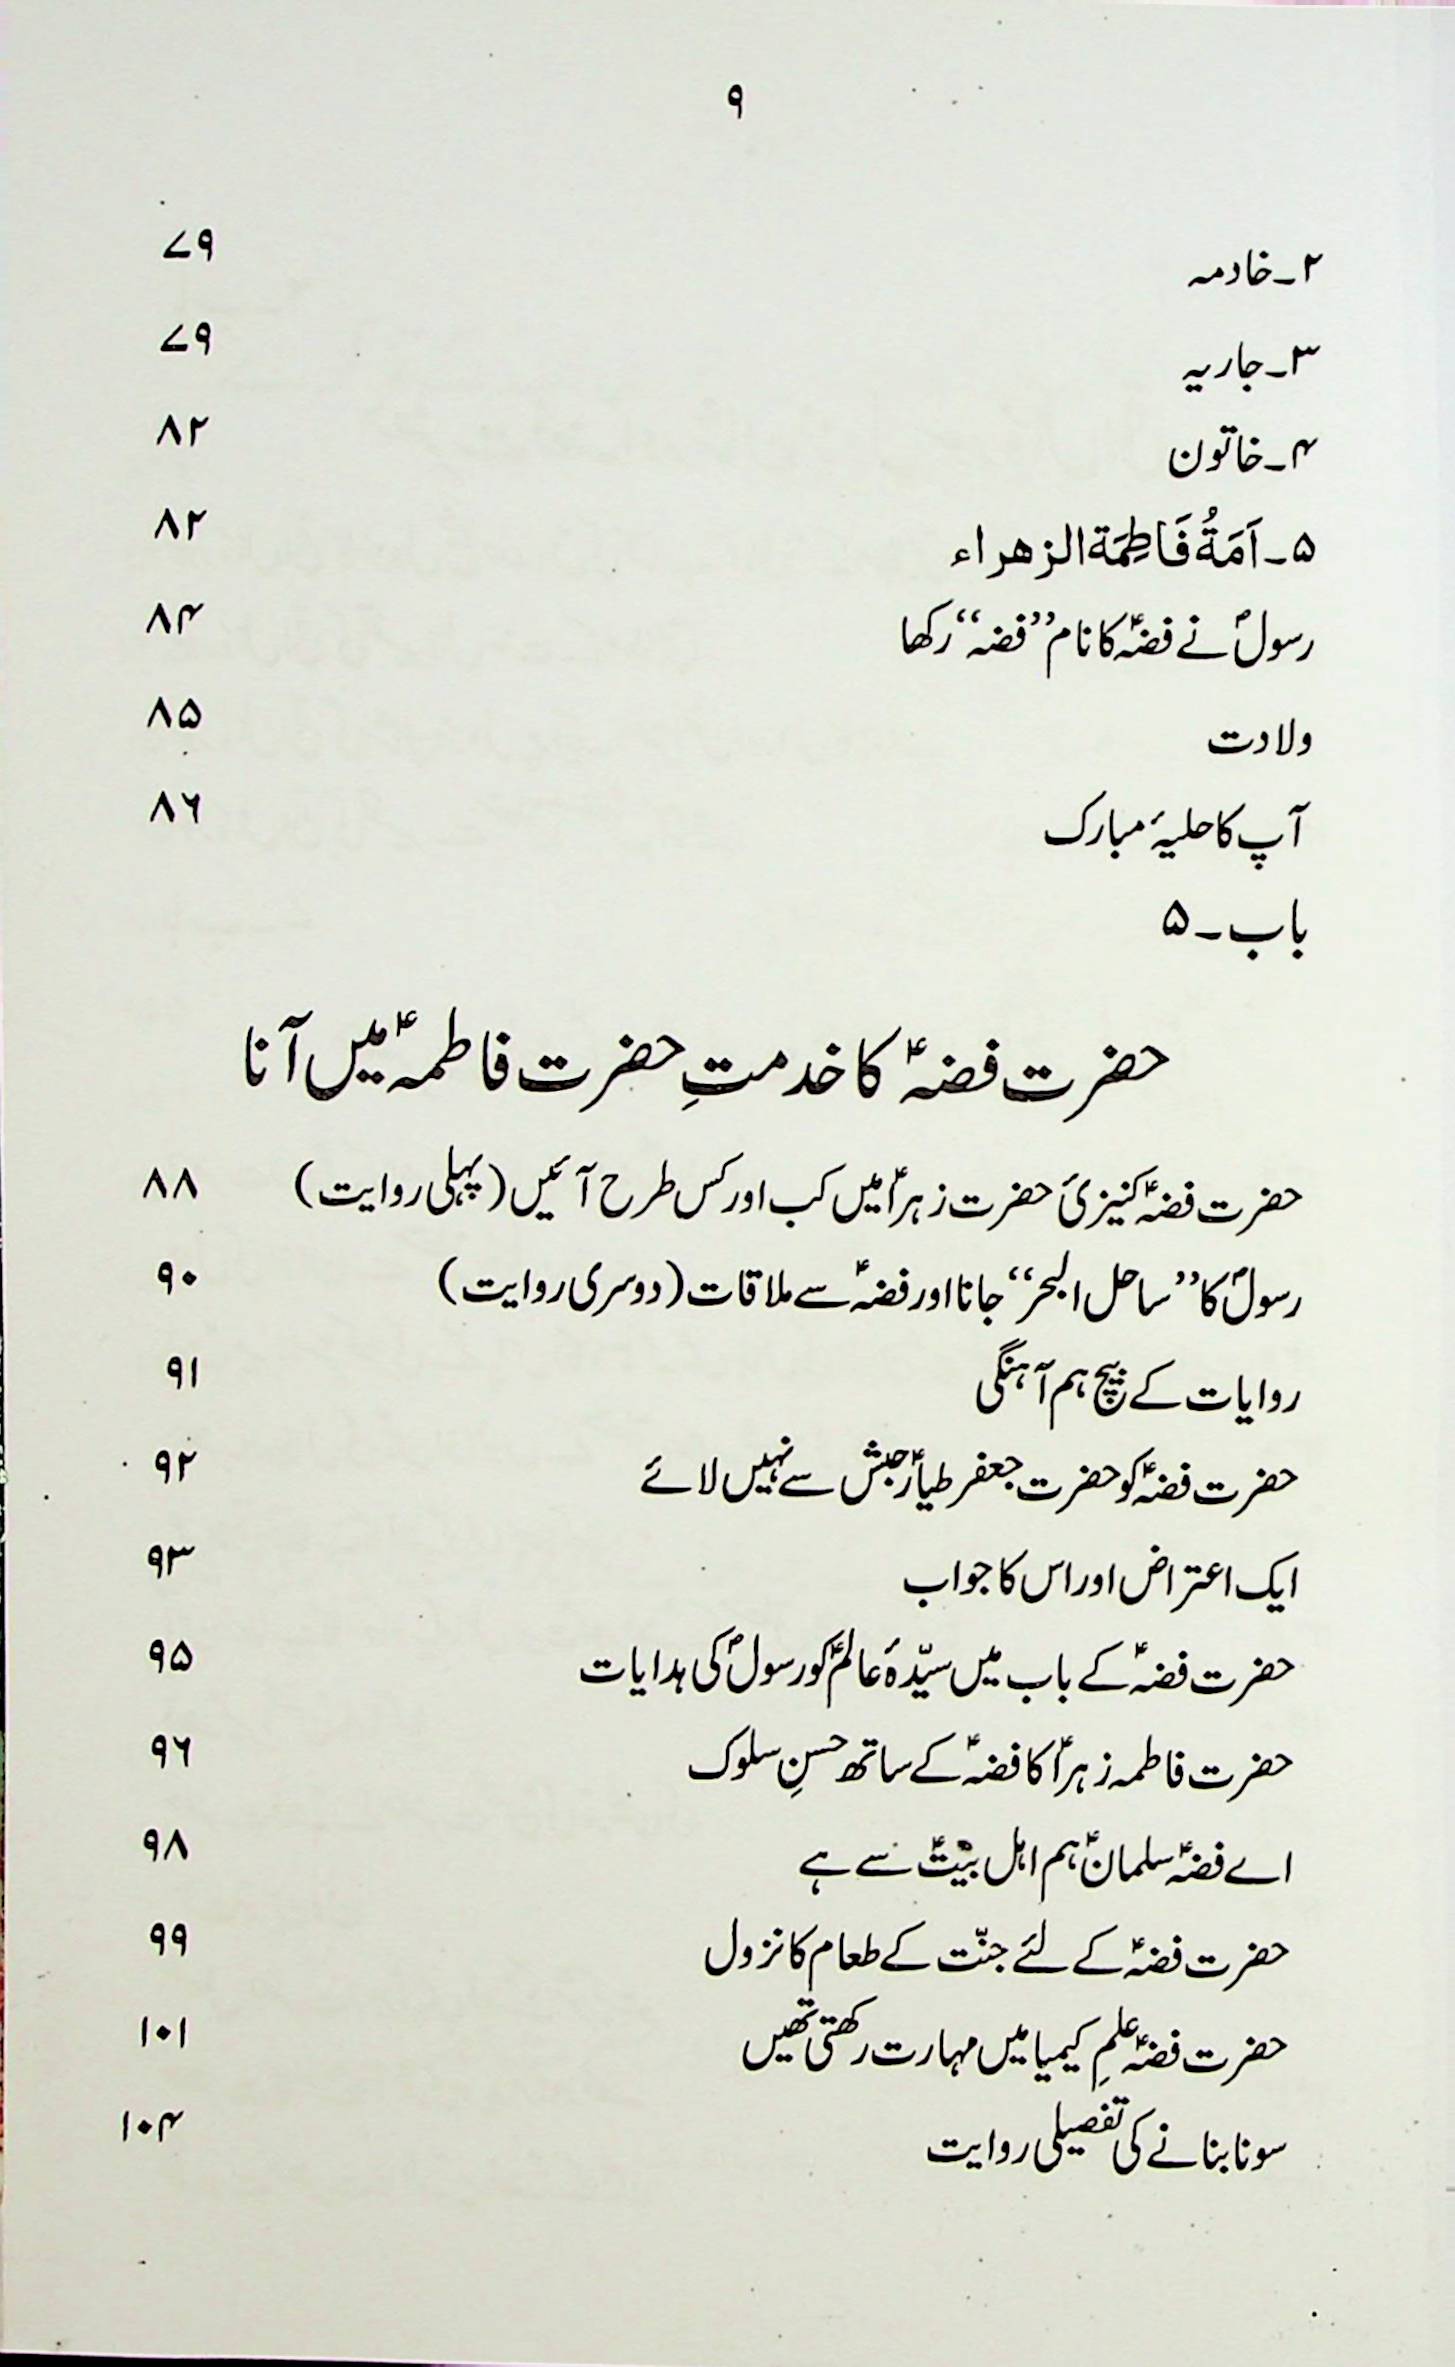 ۹
۲۔خادمہ ۷۹
۳۔جاریہ ۷۹
۴۔خاتون ۸۲
۵۔اَمَةُ فَاطِمَة الزهراء ۸۲
رسولؐ نے فضہؑ کا نام ”فضہ“ رکھا ۸۴
ولادت ۸۵
آپ کا حلیۂ مبارک ۸۶
باب۔۵
حضرت فضہؑ کا خدمتِ حضرت فاطمہؑ میں آنا
حضرت فضہؑ کنیزیٔ حضرت زہراؑ میں کب اور کس طرح آئیں (پہلی روایت) ۸۸
رسولؐ کا ”ساحل البحر“ جانا اور فضہؑ سے ملاقات (دوسری روایت) ۹۰
روایات کے بیچ ہم آہنگی ۹۱
حضرت فضہؑ کو حضرت جعفر طیارؑ حبش سے نہیں لائے ۹۲
ایک اعتراض اور اس کا جواب ۹۳
حضرت فضہؑ کے باب میں سیّدۂ عالمؑ کو رسولؐ کی ہدایات ۹۵
حضرت فاطمہ زہراؑ کا فضہؑ کے ساتھ حسنِ سلوک ۹۶
اے فضہؑ سلمانؑ ہم اہل بیتؑ سے ہے ۹۸
حضرت فضہؑ کے لئے جنّت کے طعام کا نزول ۹۹
حضرت فضہؑ علمِ کیمیا میں مہارت رکھتی تھیں ۱۰۱
سونا بنانے کی تفصیلی روایت ۱۰۴